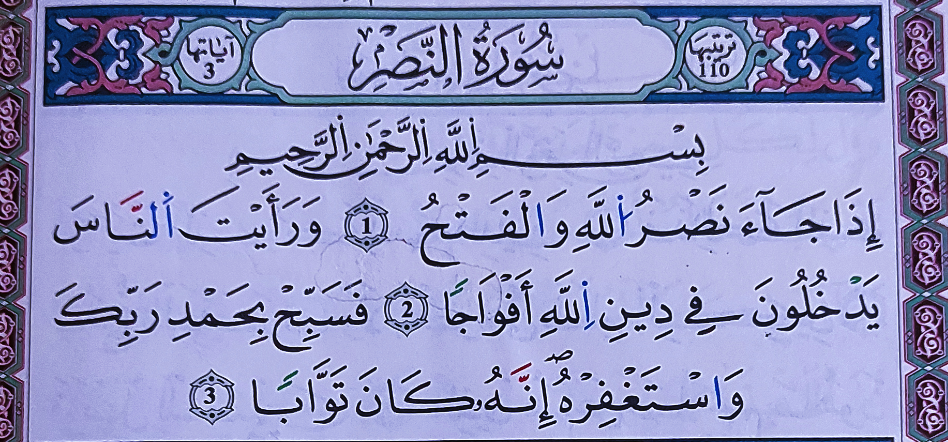 ترتيبها 110 سُورَةُ النَّصْرِ آياتها 3
بِسْمِ اللَّهِ الرَّحْمَٰنِ الرَّحِيمِ
إِذَا جَآءَ نَصْرُ اللَّهِ وَالْفَتْحُ 1 وَرَأَيْتَ النَّاسَ
يَدْخُلُونَ فِي دِينِ اللَّهِ أَفْوَاجًا 2 فَسَبِّحْ بِحَمْدِ رَبِّكَ
وَاسْتَغْفِرْهُ ۖ إِنَّهُۥ كَانَ تَوَّابًا 3